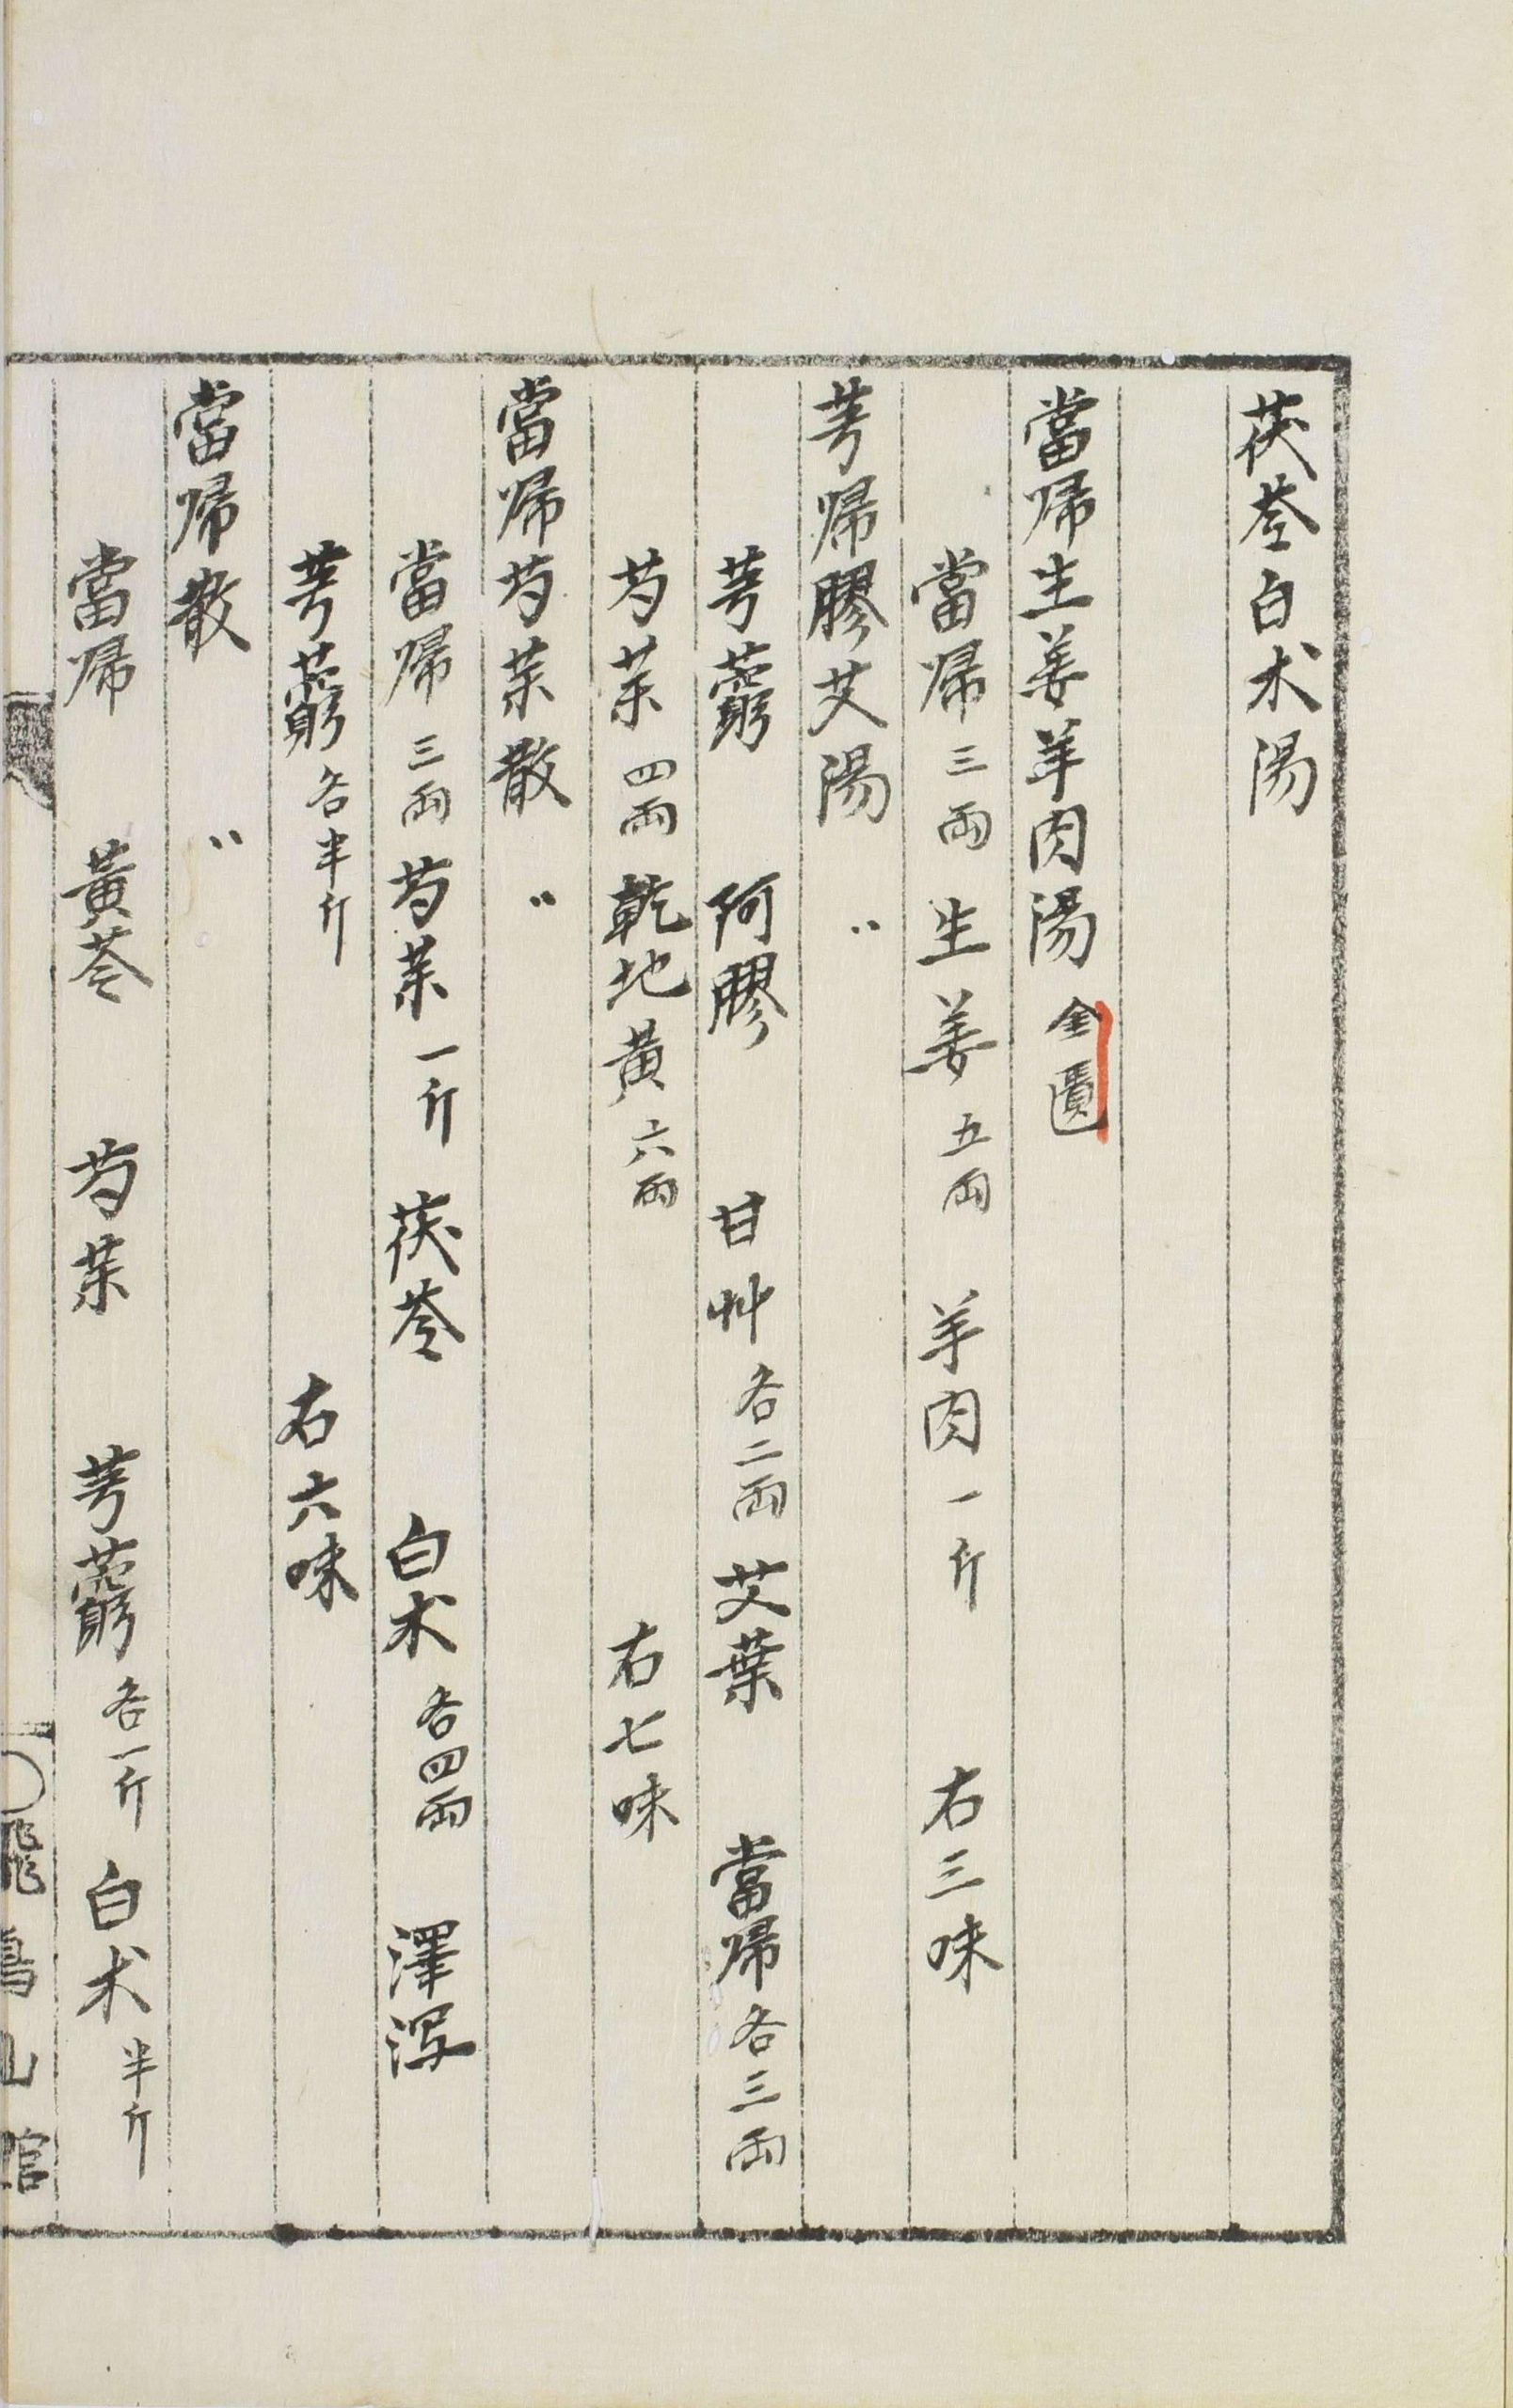 茯苓白术湯
當帰生姜羊肉湯 金匱
當帰三兩 生姜五兩 羊肉一斤 右三味
芎帰膠艾湯 〃
芎藭 阿膠 甘艸各二兩 艾葉 當帰各三兩
芍薬四兩 乾地黄六兩 右七味
當帰芍薬散 〃
當帰三兩 芍薬一斤 茯苓 白术各四兩 澤泻
芎藭各半斤 右六味
當帰散 〃
當帰 黄芩 芍薬 芎藭各一斤 白术半斤
飛鳥山館